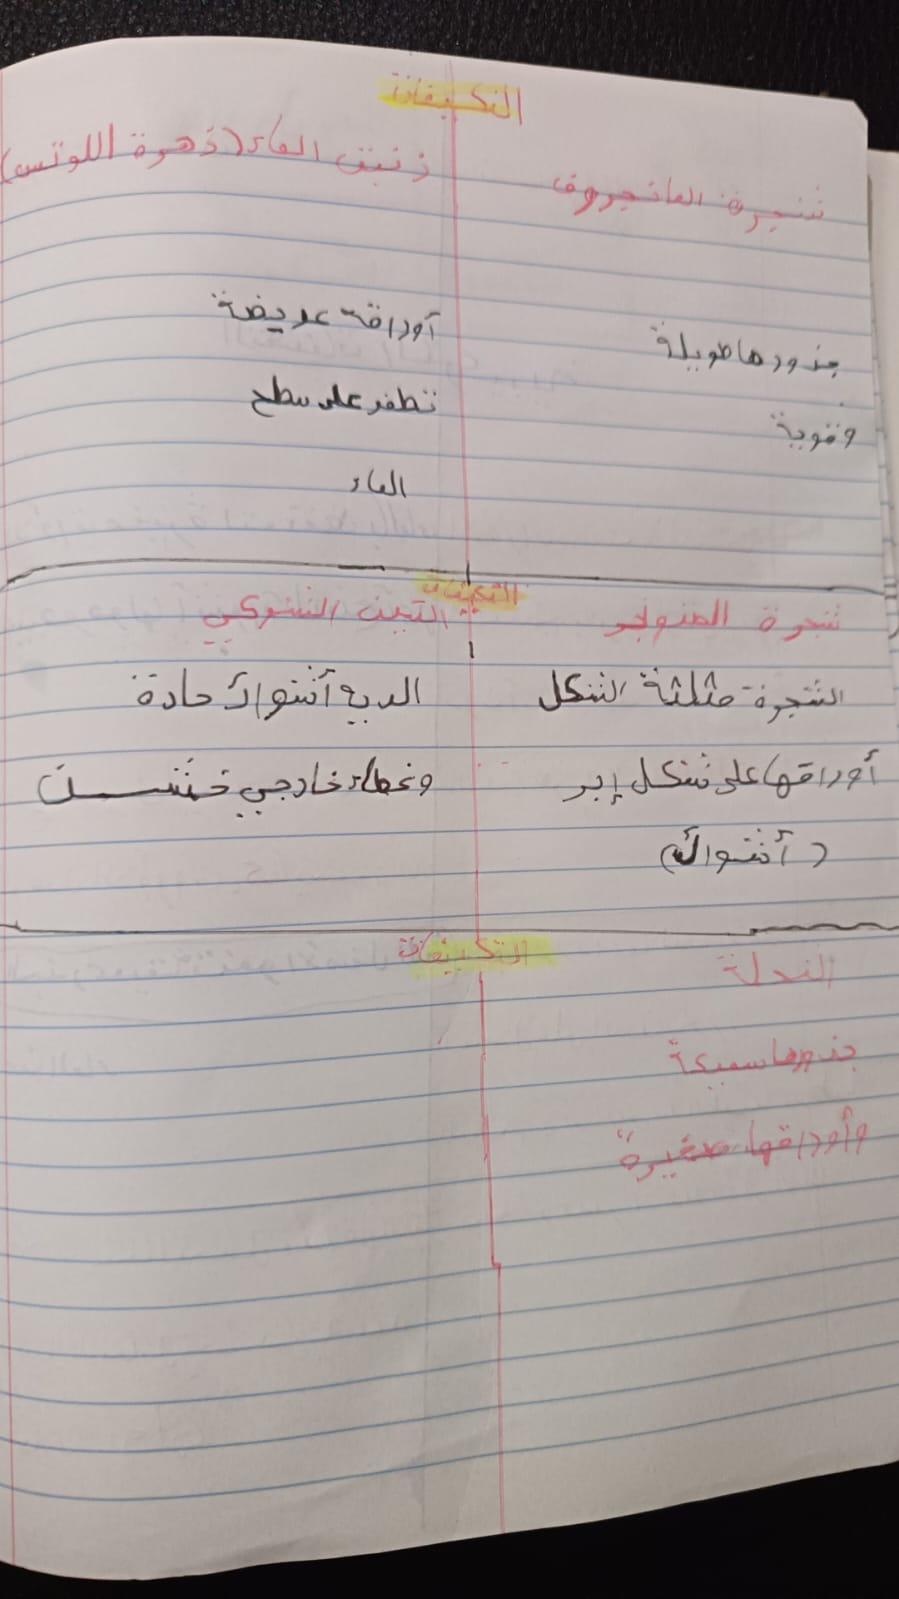 التكيفات
شجرة المانجروف
زنبق الماء (زهرة اللوتس)
جذورها طويلة
وقوية
أوراقه عريضة
تطفو على سطح
الماء
التكيفات
شجرة الصنوبر
التين الشوكي
الشجرة مثلثة الشكل
أوراقها على شكل إبر
(أشواك)
لديه أشواك حادة
وغطاء خارجي خشن
التكيفات
النخلة
جذورها سميكة
وأوراقها صغيرة